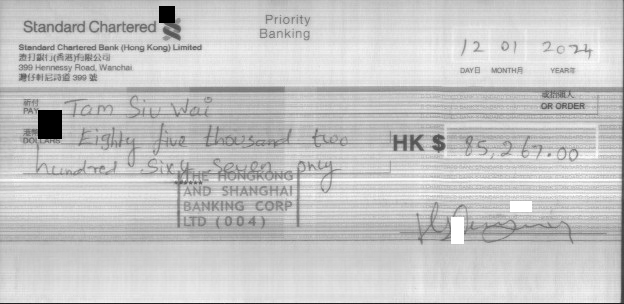 Standard Chartered
Priority
Banking
Standard Chartered Bank (Hong Kong) Limited
渣打銀行(香港)有限公司
399 Hennessy Road, Wanchai.
灣仔軒尼詩道 399 號
12 01 2024
DAY日 MONTH月 YEAR年
祈付
PAY Tam Siu Wai
或指頭人
OR ORDER
港幣
DOLLARS Eighty five thousand two
HK $ 85,267.00
hundred Sixty Seven only
THE HONGKONG
AND SHANGHAI
BANKING CORP
LTD (004)